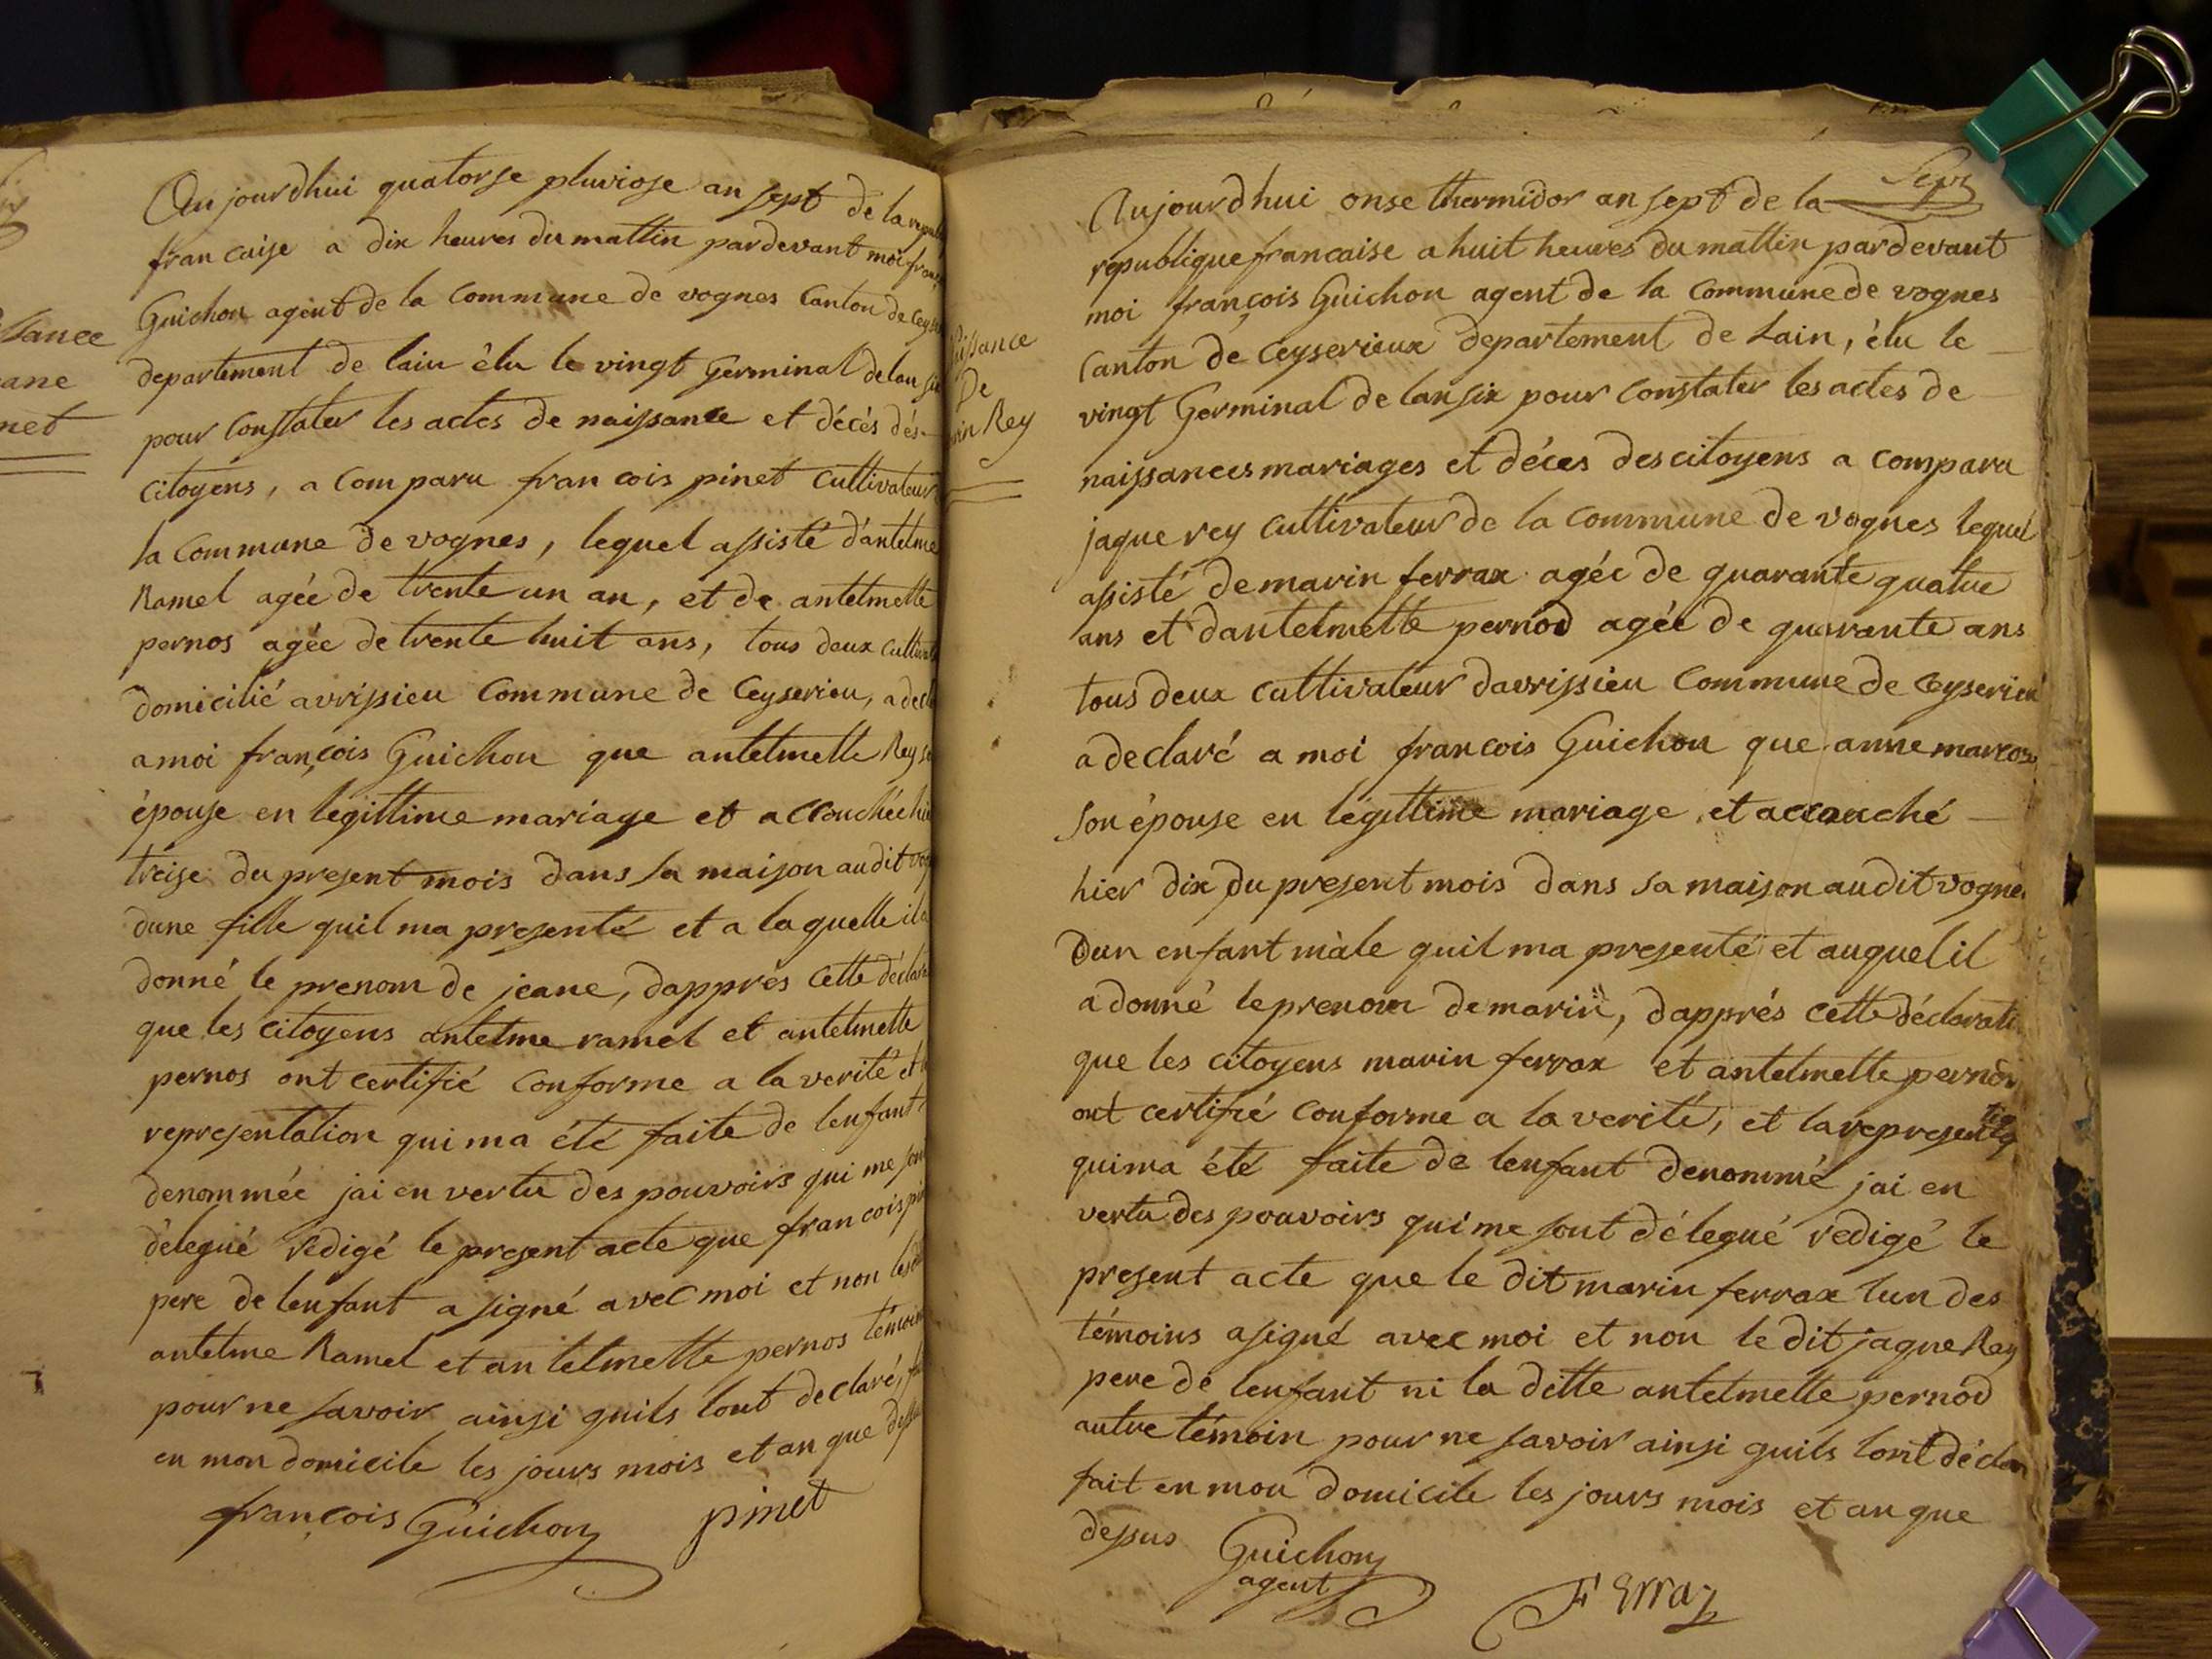 sance
ane
net
Aujourdhui quatorse pluviose an sept de la
francaise a dix heures du mattin pardevant moi
Guichon agent de la Commune de vognes Canton de
departement de lain élu le vingt Germinal de lan
pour Constater les actes de naissance et décés dés
Citoyens, a Comparu francois pinet Cultivateur
la Commune de vognes, lequel assisté dantelme
Ramel agée de trente un an, et de antelmette
pernos agée de trente huit ans, tous deux
domicilié avrissieu Commune de Ceyserieu,
a moi françois Guichon que antelmette Rey
épouse en legittime mariage et accouchée
treise du present mois dans sa maison audit
dune fille quil ma presenté et a laquelle il
donné le prenom de jeane, dapprés Cette
que les citoyens antelme ramel et antelmette
pernos ont certifié Conforme a la verité et
representation qui ma été faite de lenfant
denommée jai en vertu des pouvoirs qui me
délegué redigé le present acte que francois
pere de lenfant a signé avec moi et non
antelme Ramel et antelmette pernos témoins
pour ne savoir ainsi quils lont declaré,
en mon domicile les jours mois et an que
françois Guichon pinet
Sept
issance
De
rin Rey
Aujourdhui onse thermidor an sept de la
republique francaise a huit heures du mattin pardevant
moi françois Guichon agent de la Commune de vognes
Canton de Ceyserieux departement de Lain, élu le
vingt Germinal de lan six pour Constater les actes de
naissances mariages et déces des citoyens a comparu
jaque rey Cultivateur de la Commune de vognes lequel
assisté de marin ferrax agée de quarante quatre
ans et dantelmette pernod agée de quarante ans
tous deux Cultivateur davrissieu Commune de Ceyserieu
a declaré a moi francois Guichon que anne
son épouse en legittime mariage et accouché
hier dix du present mois dans sa maison audit vognes
dun enfant mâle quil ma presenté et auquel il
a donné le prenom de marin, dapprés Cette
que les citoyens marin ferrax et antelmette pernod
ont certifié Conforme a la verité, et la
qui ma été faite de lenfant denommé jai en
vertu des pouvoirs qui me sont délegué redigé le
present acte que le dit marin ferrax lun des
témoins a signé avec moi et non le dit jaque Rey
pere de lenfant ni la ditte antelmette pernod
autre témoin pour ne savoir ainsi quils lont
fait en mon domicile les jours mois et an que
dessus Guichon
agent Ferraz